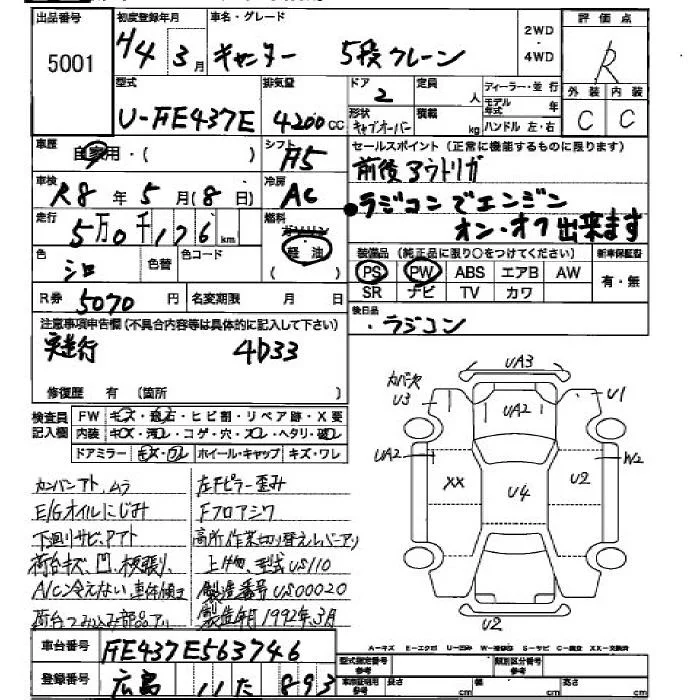 出品番号 初度登録年月 車名・グレード 2WD 評価点
5001 H4 3月 キャンター 5段クレーン ・ 4WD R
型式 排気量 ドア 2 定員 人 ディーラー・並行 外装 内装
U-FE437E 4200cc 形状 キャブオーバー 積載 kg モデル年式 年 C C
ハンドル 左・右
車歴 自家用・( ) シフト F5 セールスポイント(正常に機能するものに限ります)
前後アウトリガ
車検 R8年5月(8日) 冷房 AC
●ラジコンでエンジン
走行 5万0千176km 燃料 ガソリン 軽油 ( )
オン・オフ出来ます
色 シロ 色替 色コード 装備品(純正品に限り○をつけてください) 新車保証書
PS PW ABS エアB AW 有・無
SR ナビ TV カワ
R券 5070円 名変期限 月 日
後日品
・ラジコン
注意事項申告欄(不具合内容等は具体的に記入して下さい)
実走行 4D33
修復歴 有 (箇所 )
検査員記入欄 FW キズ・飛石・ヒビ割・リペア跡・X要
内装 キズ・汚レ・コゲ・穴・スレ・ヘタリ・破レ
ドアミラー キズ・ワレ ホイール・キャップ キズ・ワレ
カンバンアト、ムラ
E/Gオイルにじみ
下廻りサビ、アト
荷台キズ、凹、板張り、
A/C冷えない 車体傾き
荷台つみ込み部品アリ
左Fピラー歪み
Fフロアシワ
高所作業切り替えレバーアリ
上げ物、型式US110
製造番号US00020
製造年月1992年3月
UA3
カバー欠
U3
UA2
U1
UA2
XX
U4
U2
W2
U2
A-キズ E-エクボ U-凹み W-補修跡 S-サビ C-腐食 XX-交換済
車台番号 FE437E563746
登録番号 広島 11た893
型式指定番号 参考 類別区分番号 参考
車検証記載 参考 長さ cm 幅 cm 高さ cm